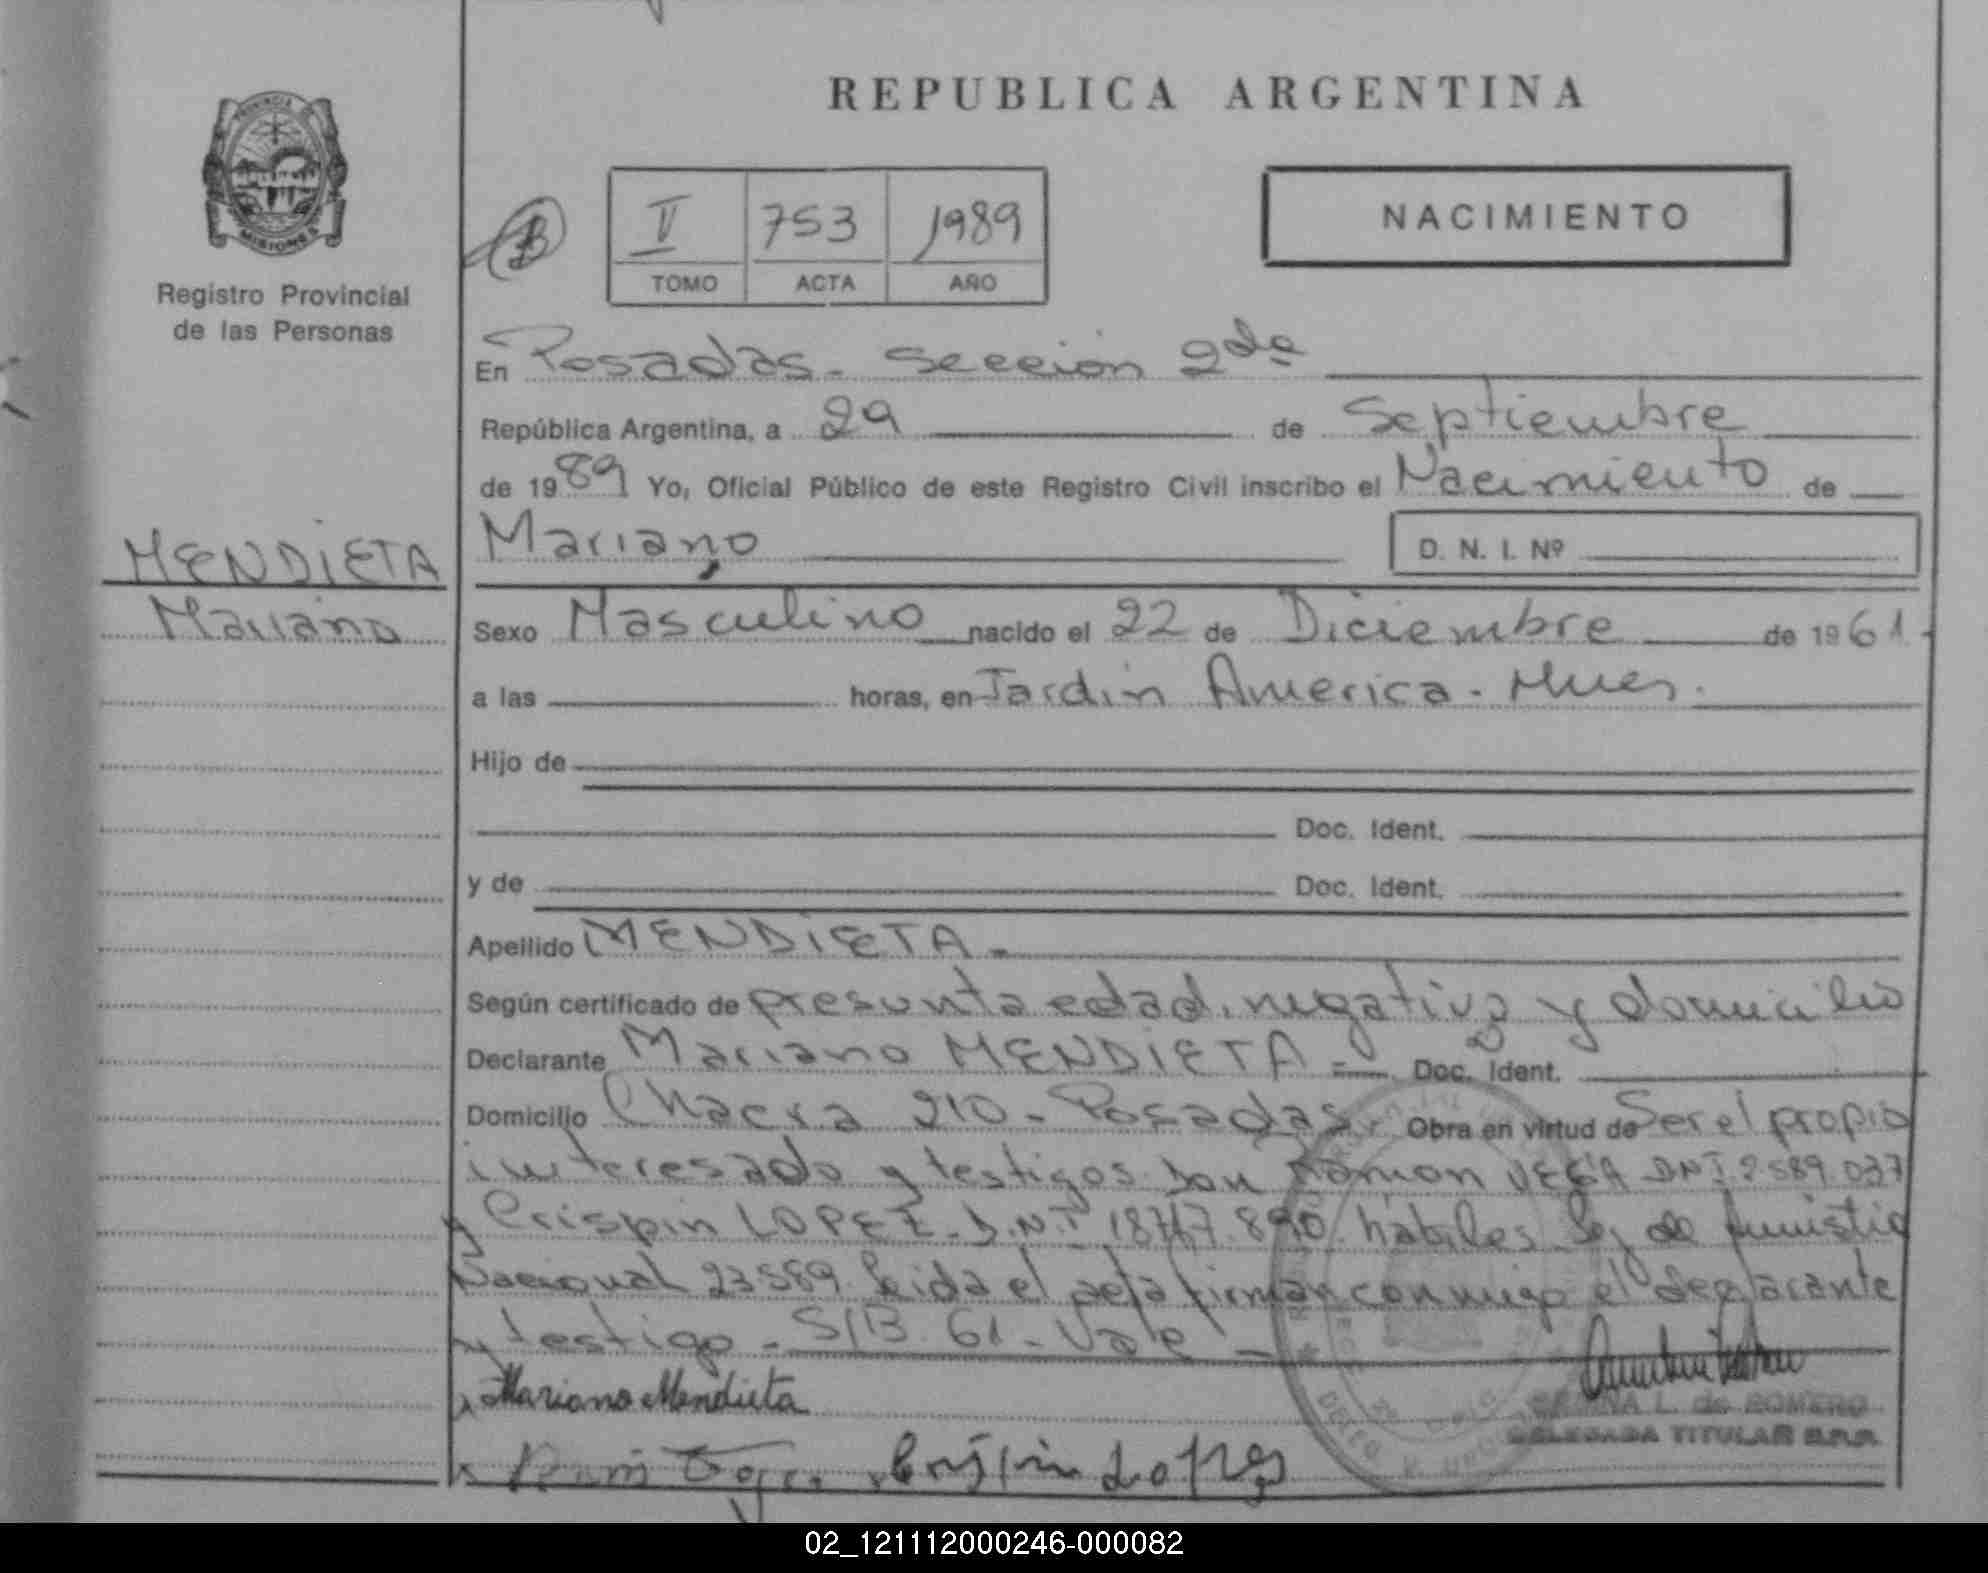 REPUBLICA ARGENTINA
PROVINCIA
MISIONES
Registro Provincial
de las Personas
B
II 753 1989
TOMO ACTA AÑO
NACIMIENTO
En Posadas. Sección 2da
República Argentina, a 29 de Septiembre
de 1989 Yo, Oficial Público de este Registro Civil inscribo el Nacimiento de
MENDIETA
Mariano
Mariano D. N. I. Nº
Sexo Masculino nacido el 22 de Diciembre de 1961.
a las horas, en Jardin America.
Hijo de
Doc. Ident.
y de Doc. Ident.
Apellido MENDIETA.
Según certificado de presunta edad, negativo y domicilio
Declarante Mariano MENDIETA Doc. Ident.
Domicilio Chacra 210 - Posadas. Obra en virtud de Ser el propio
interesado y testigos Don Ramon VEGA DNI 2.589.037
y Crispin LOPEZ - D.N.I. habiles. Ley de
Nacional 23.589. Leida el acta firman conmigo el declarante
y testigo - S/B 61 - Vale
Mariano Mendieta
Crispin Lopez
L. de ROMERO
DELEGADA TITULAR
02_121112000246-000082